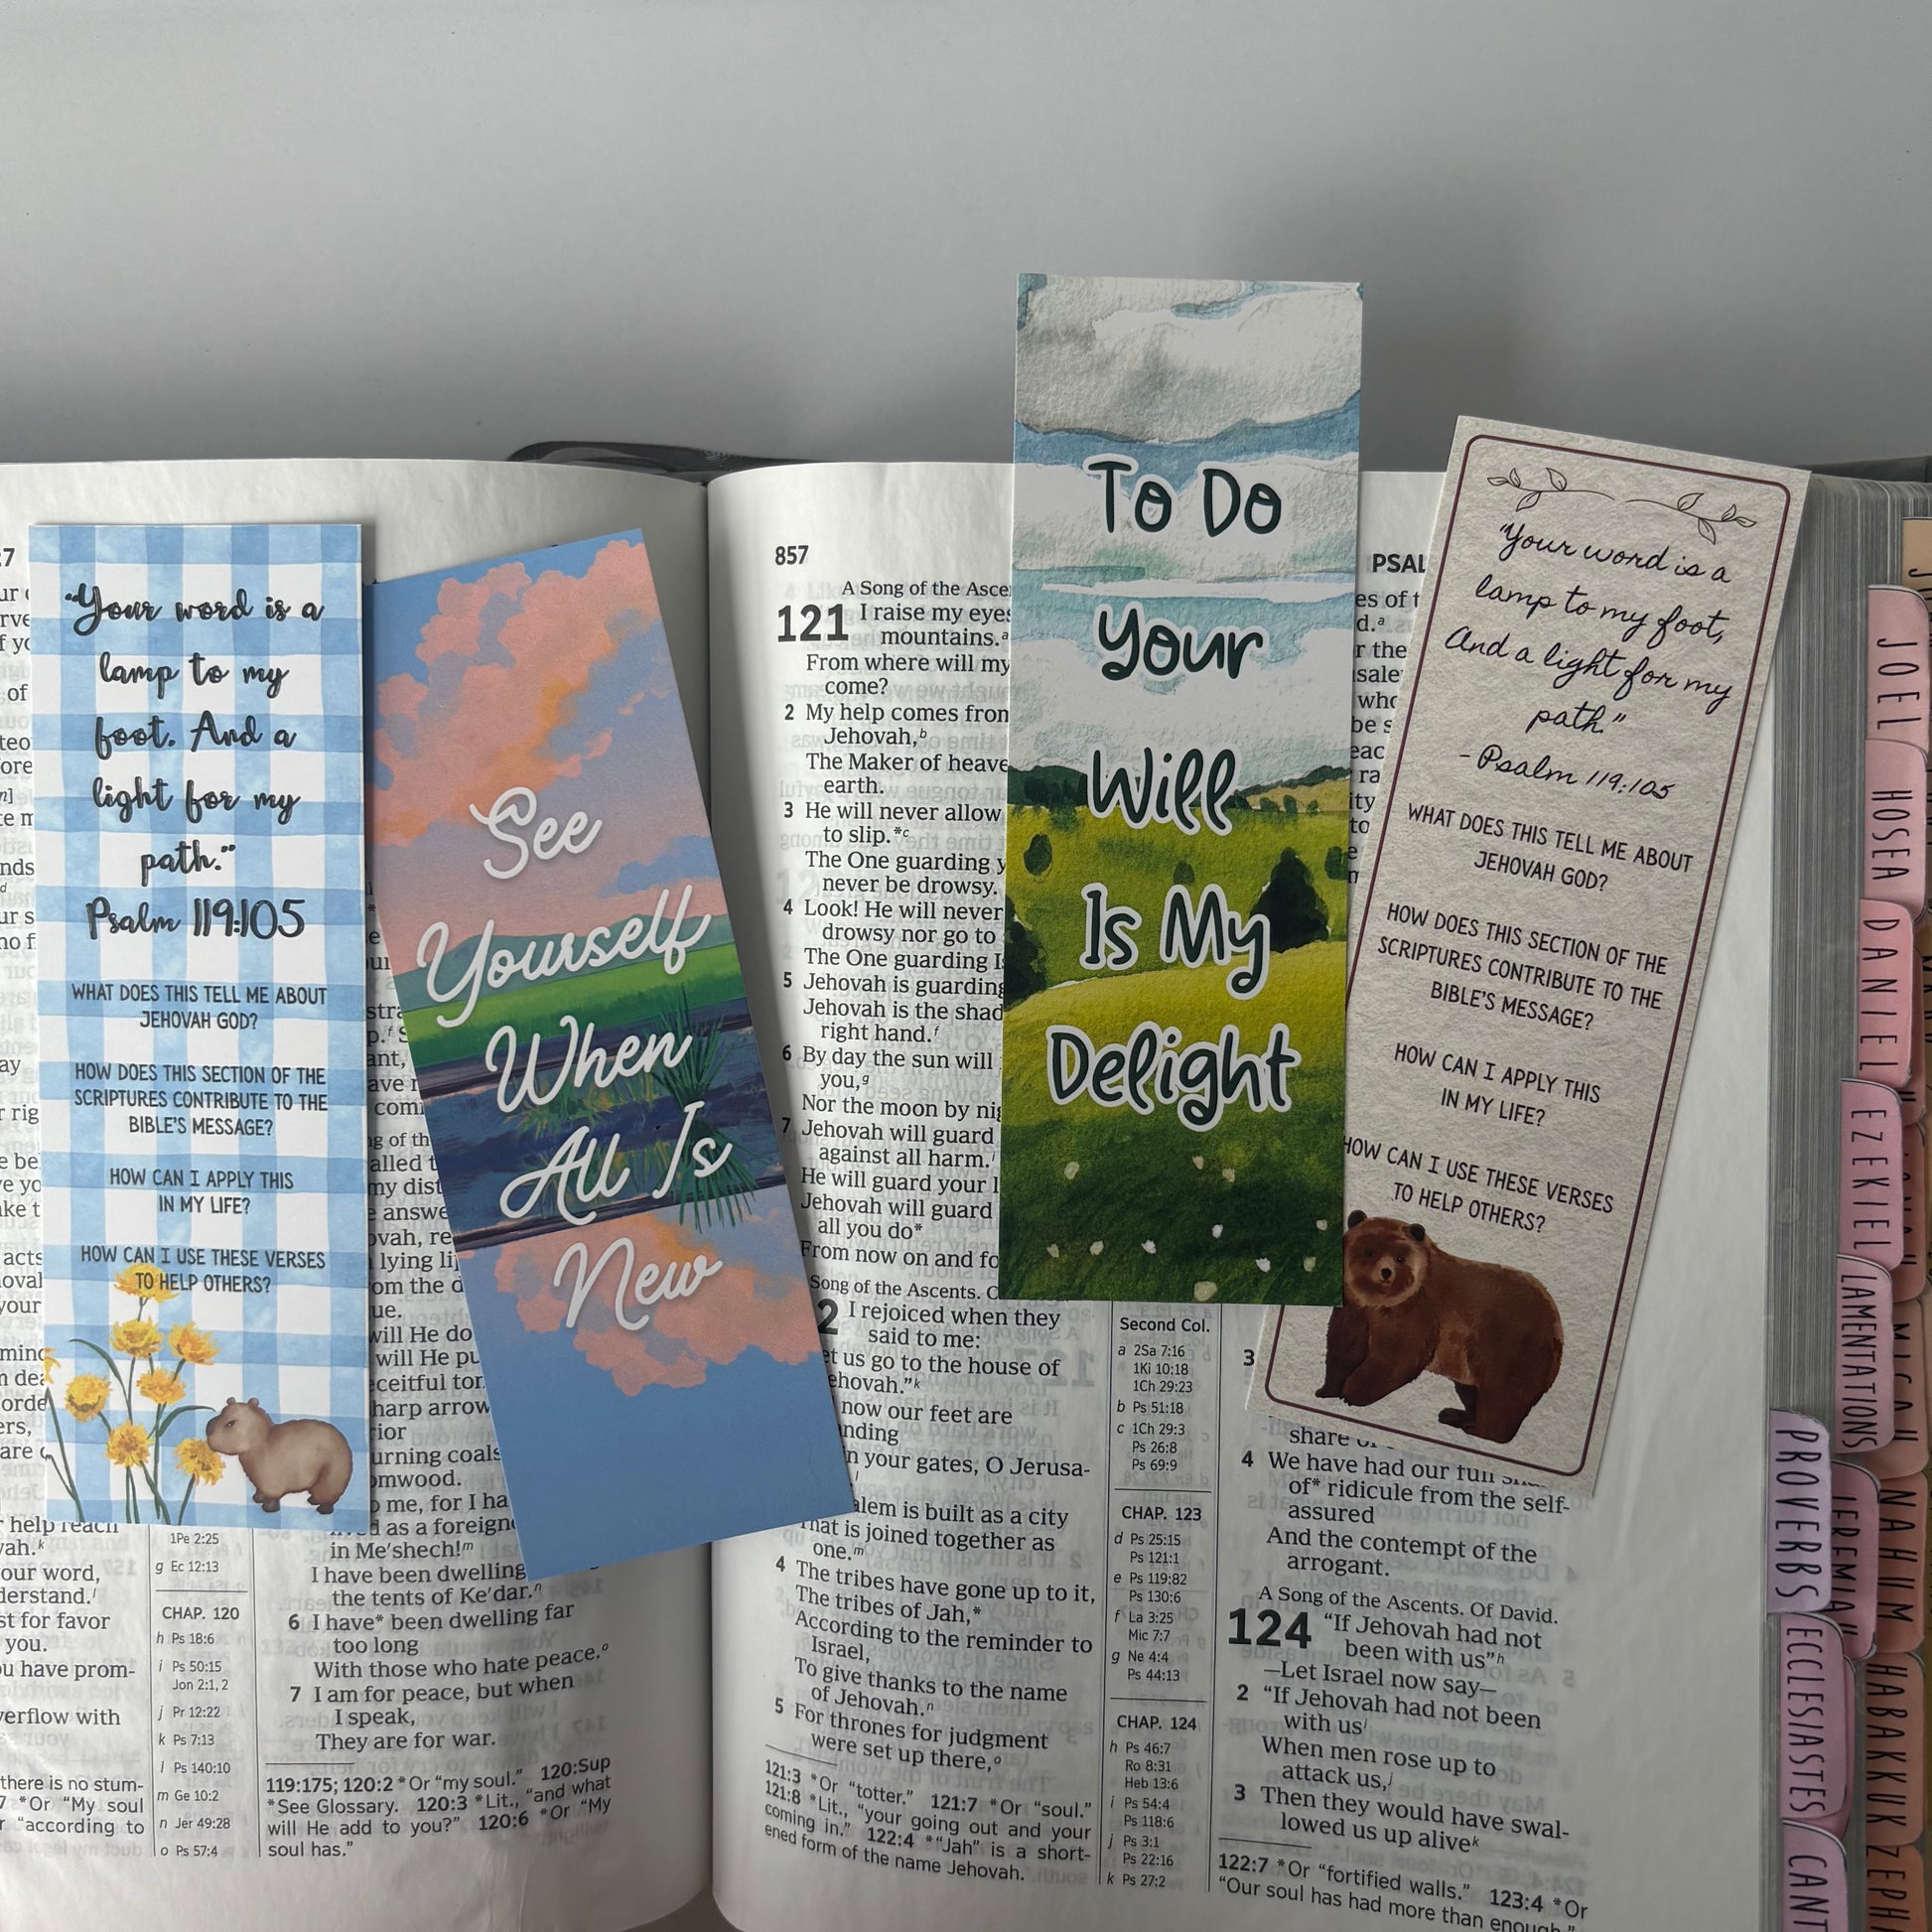 "Your word is a
lamp to my
foot. And a
light for my
path."
Psalm 119:105
WHAT DOES THIS TELL ME ABOUT
JEHOVAH GOD?
HOW DOES THIS SECTION OF THE
SCRIPTURES CONTRIBUTE TO THE
BIBLE'S MESSAGE?
HOW CAN I APPLY THIS
IN MY LIFE?
HOW CAN I USE THESE VERSES
TO HELP OTHERS?
See
Yourself
When
All Is
New
To Do
Your
Will
Is My
Delight
"Your word is a
lamp to my foot,
And a light for my
path."
- Psalm 119:105
WHAT DOES THIS TELL ME ABOUT
JEHOVAH GOD?
HOW DOES THIS SECTION OF THE
SCRIPTURES CONTRIBUTE TO THE
BIBLE'S MESSAGE?
HOW CAN I APPLY THIS
IN MY LIFE?
HOW CAN I USE THESE VERSES
TO HELP OTHERS?
help reach
our word,
st for favor
you.
have prom-
verflow with
there is no stum-
*Or "My soul
"according to
1Pe 2:25
g Ec 12:13
CHAP. 120
h Ps 18:6
i Ps 50:15
Jon 2:1, 2
j Pr 12:22
k Ps 7:13
l Ps 140:10
m Ge 10:2
n Jer 49:28
o Ps 57:4
me, for I
as a foreign
in Me'shech!m
I have been dwelling
the tents of Ke'dar.n
6 I have* been dwelling far
too long
With those who hate peace.o
7 I am for peace, but when
I speak,
They are for war.
119:175; 120:2 *Or "my soul." 120:Sup
*See Glossary. 120:3 *Lit., "and what
will He add to you?" 120:6 *Or "My
soul has."
857
A Song of the
121 I raise my eyes
mountains.a
From where will my
come?
2 My help comes from
Jehovah,b
The Maker of
earth.
3 He will never allow
to slip.*c
The One guarding
never be drowsy.
4 Look! He will never
drowsy nor go to
The One guarding
5 Jehovah is guarding
Jehovah is the
right hand.f
6 By day the sun will
you,g
Nor the moon by
7 Jehovah will guard
against all harm.i
He will guard your
Jehovah will guard
all you do*
From now on and
Song of the Ascents.
2 I rejoiced when they
said to me:
us go to the house of
now our feet are
in your gates, O Jerusa-
is built as a city
That is joined together as
one.m
4 The tribes have gone up to it,
The tribes of Jah,*
According to the reminder to
Israel,
To give thanks to the name
of Jehovah.n
5 For thrones for judgment
were set up there,o
121:3 *Or "totter." 121:7 *Or "soul."
121:8 *Lit., "your going out and your
coming in." 122:4 *"Jah" is a short-
ened form of the name Jehovah.
Second Col.
a 2Sa 7:16
1Ki 10:18
1Ch 29:23
b Ps 51:18
c 1Ch 29:3
Ps 26:8
Ps 69:9
CHAP. 123
d Ps 25:15
Ps 121:1
e Ps 119:82
Ps 130:6
f La 3:25
Mic 7:7
g Ne 4:4
Ps 44:13
CHAP. 124
h Ps 46:7
Ro 8:31
Heb 13:6
i Ps 54:4
Ps 118:6
j Ps 3:1
Ps 22:16
k Ps 27:2
3
share
4 We have had our full
of* ridicule from the self-
assured
And the contempt of the
arrogant.
A Song of the Ascents. Of David.
124 "If Jehovah had not
been with us"h
—Let Israel now say—
2 "If Jehovah had not been
with usi
When men rose up to
attack us,j
3 Then they would have swal-
lowed us up alivek
122:7 *Or "fortified walls." 123:4 *Or
"Our soul has had more than enough."
JOEL
HOSEA
DANIEL
EZEKIEL
LAMENTATIONS
JEREMIAH
PROVERBS
ECCLESIASTES
MICAH
NAHUM
HABAKKUK